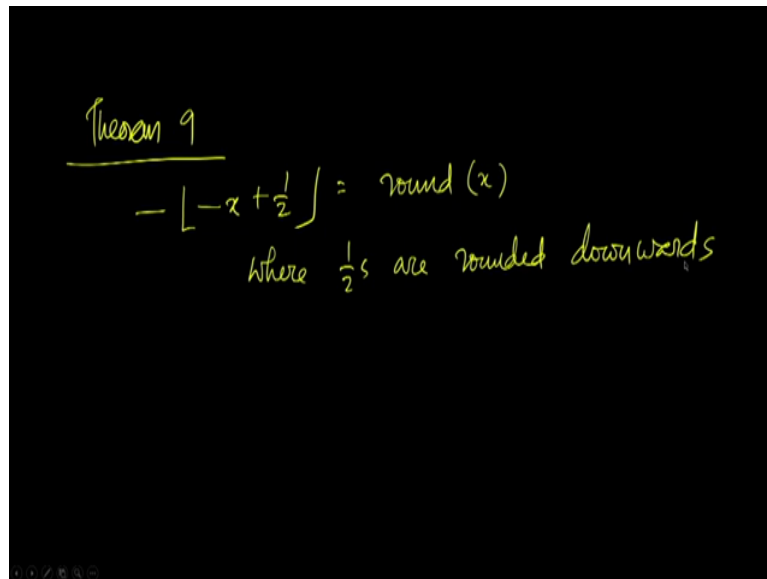 Theorem 9
- ⌊-x + 1/2⌋ = round (x)
where 1/2 s are rounded downwards